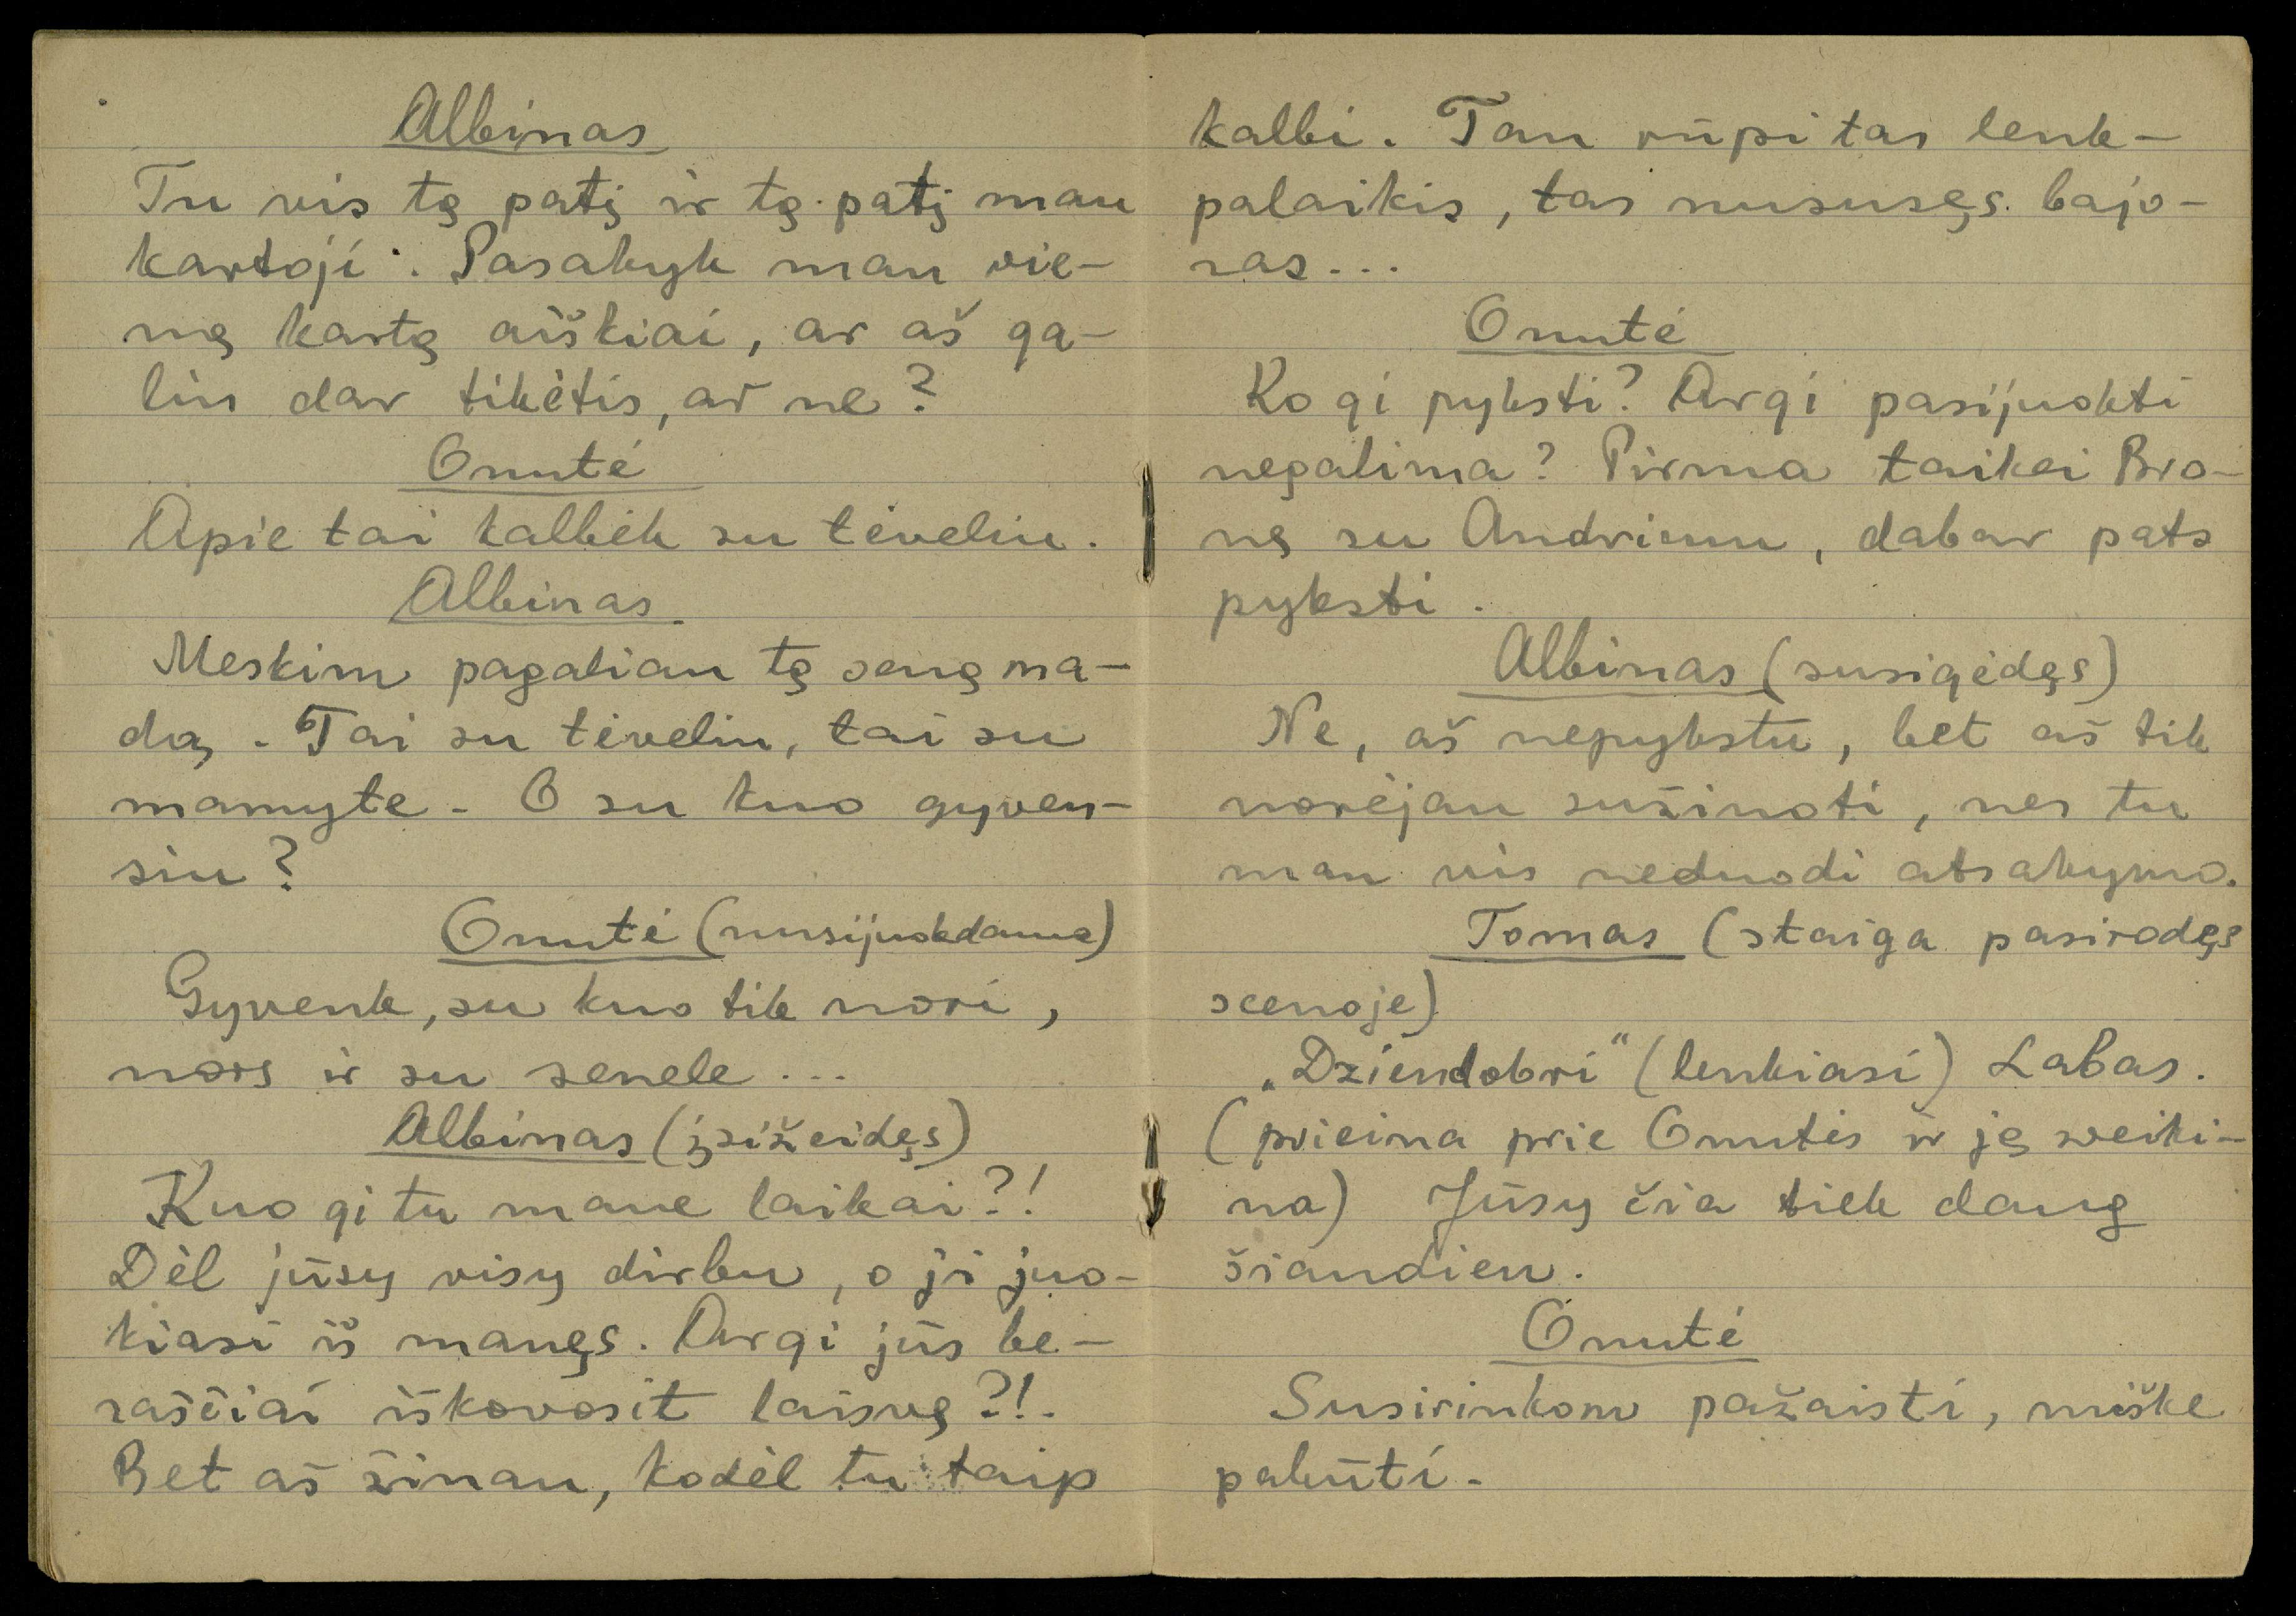 Albinas
Tu vis tą patį ir tą patį man
kartoji. Pasakyk man vie-
ną kartą aiškiai, ar aš ga-
liu dar tikėtis, ar ne?
Onutė
Apie tai kalbėk su tėveliu.
Albinas
Meskim pagaliau tą seną ma-
dą. Tai su tėveliu, tai su
mamyte. O su kuo gyven-
siu?
Onutė (nusijuokdama)
Gyvenk, su kuo tik nori,
nors ir su senele...
Albinas (įsižeidęs)
Kuo gi tu mane laikai?!
Dėl jūsų visų dirbu, o ji juo-
kiasi iš manęs. Argi jūs be-
raščiai iškovosit laisvę?!.
Bet aš žinau, kodėl tu taip
kalbi. Tau rūpi tas lenk-
palaikis, tas nususęs bajo-
ras...
Onutė
Ko gi pyksti? Argi pasijuokti
negalima? Pirma taikei Bro-
nę su Andrium, dabar pats
pyksti.
Albinas (susigėdęs)
Ne, aš nepykstu, bet aš tik
norėjau sužinoti, nes tu
man vis neduodi atsakymo.
Tomas (staiga pasirodęs
scenoje)
„Dziendobri" (lenkiasi) Labas.
(prieina prie Onutės ir ją sveiki-
na) Jūsų čia tiek daug
šiandien.
Onutė
Susirinkom pažaisti, miške
pabūti.